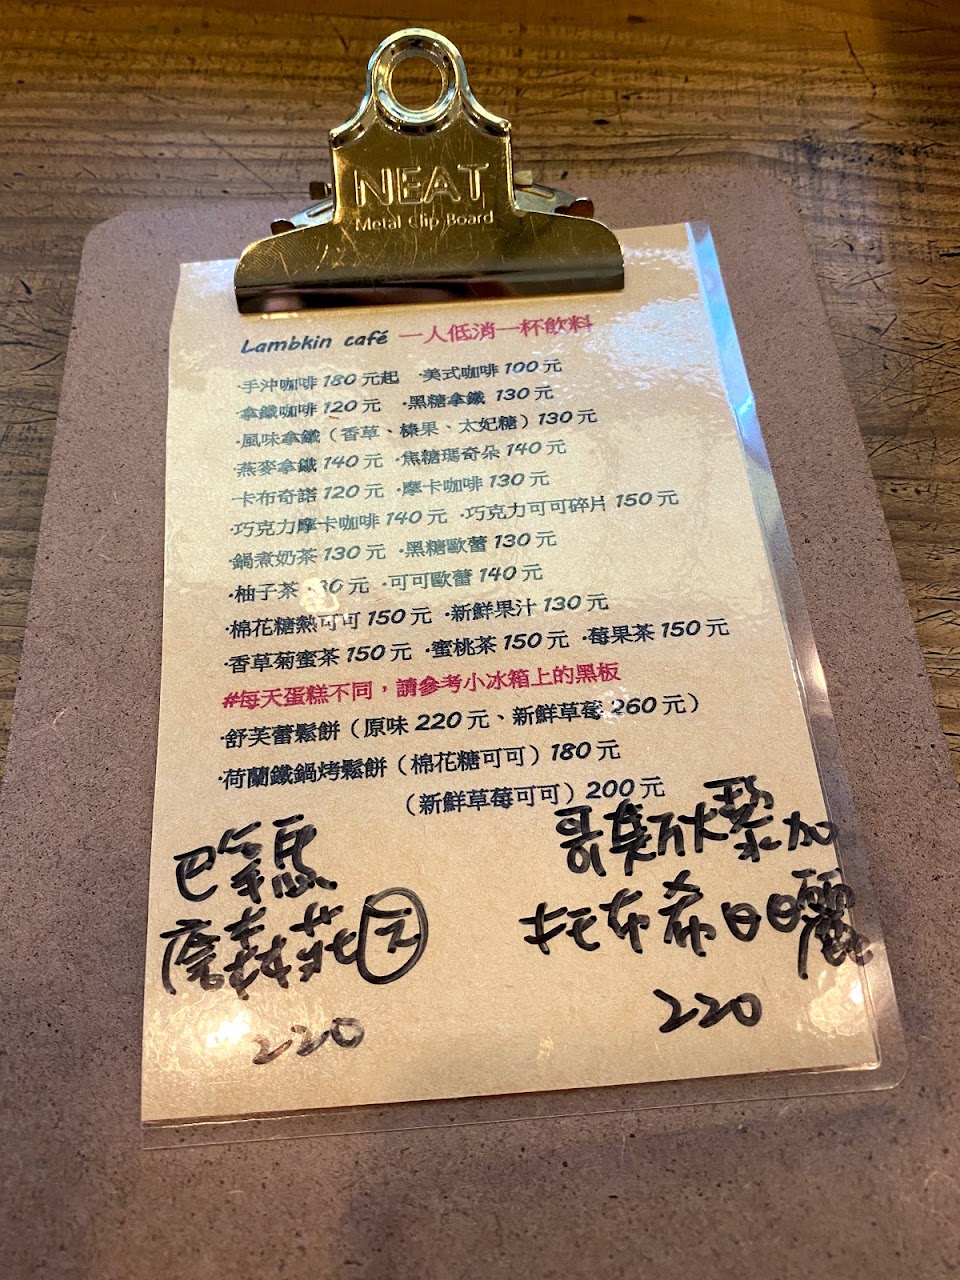 NEAT
Metal Clip Board
Lambkin café 一人低消一杯飲料
·手沖咖啡 180 元起 ·美式咖啡 100 元
·拿鐵咖啡 120 元 ·黑糖拿鐵 130 元
·風味拿鐵（香草、榛果、太妃糖）130 元
·燕麥拿鐵 140 元 ·焦糖瑪奇朵 140 元
·卡布奇諾 120 元 ·摩卡咖啡 130 元
·巧克力摩卡咖啡 140 元 ·巧克力可可碎片 150 元
·鍋煮奶茶 130 元 ·黑糖歐蕾 130 元
·柚子茶 30 元 ·可可歐蕾 140 元
·棉花糖熱可可 150 元 ·新鮮果汁 130 元
·香草菊蜜茶 150 元 ·蜜桃茶 150 元 ·莓果茶 150 元
#每天蛋糕不同，請參考小冰箱上的黑板
·舒芙蕾鬆餅（原味 220 元、新鮮草莓 260 元）
·荷蘭鐵鍋烤鬆餅（棉花糖可可）180 元
（新鮮草莓可可）200 元
巴拿馬
220
220